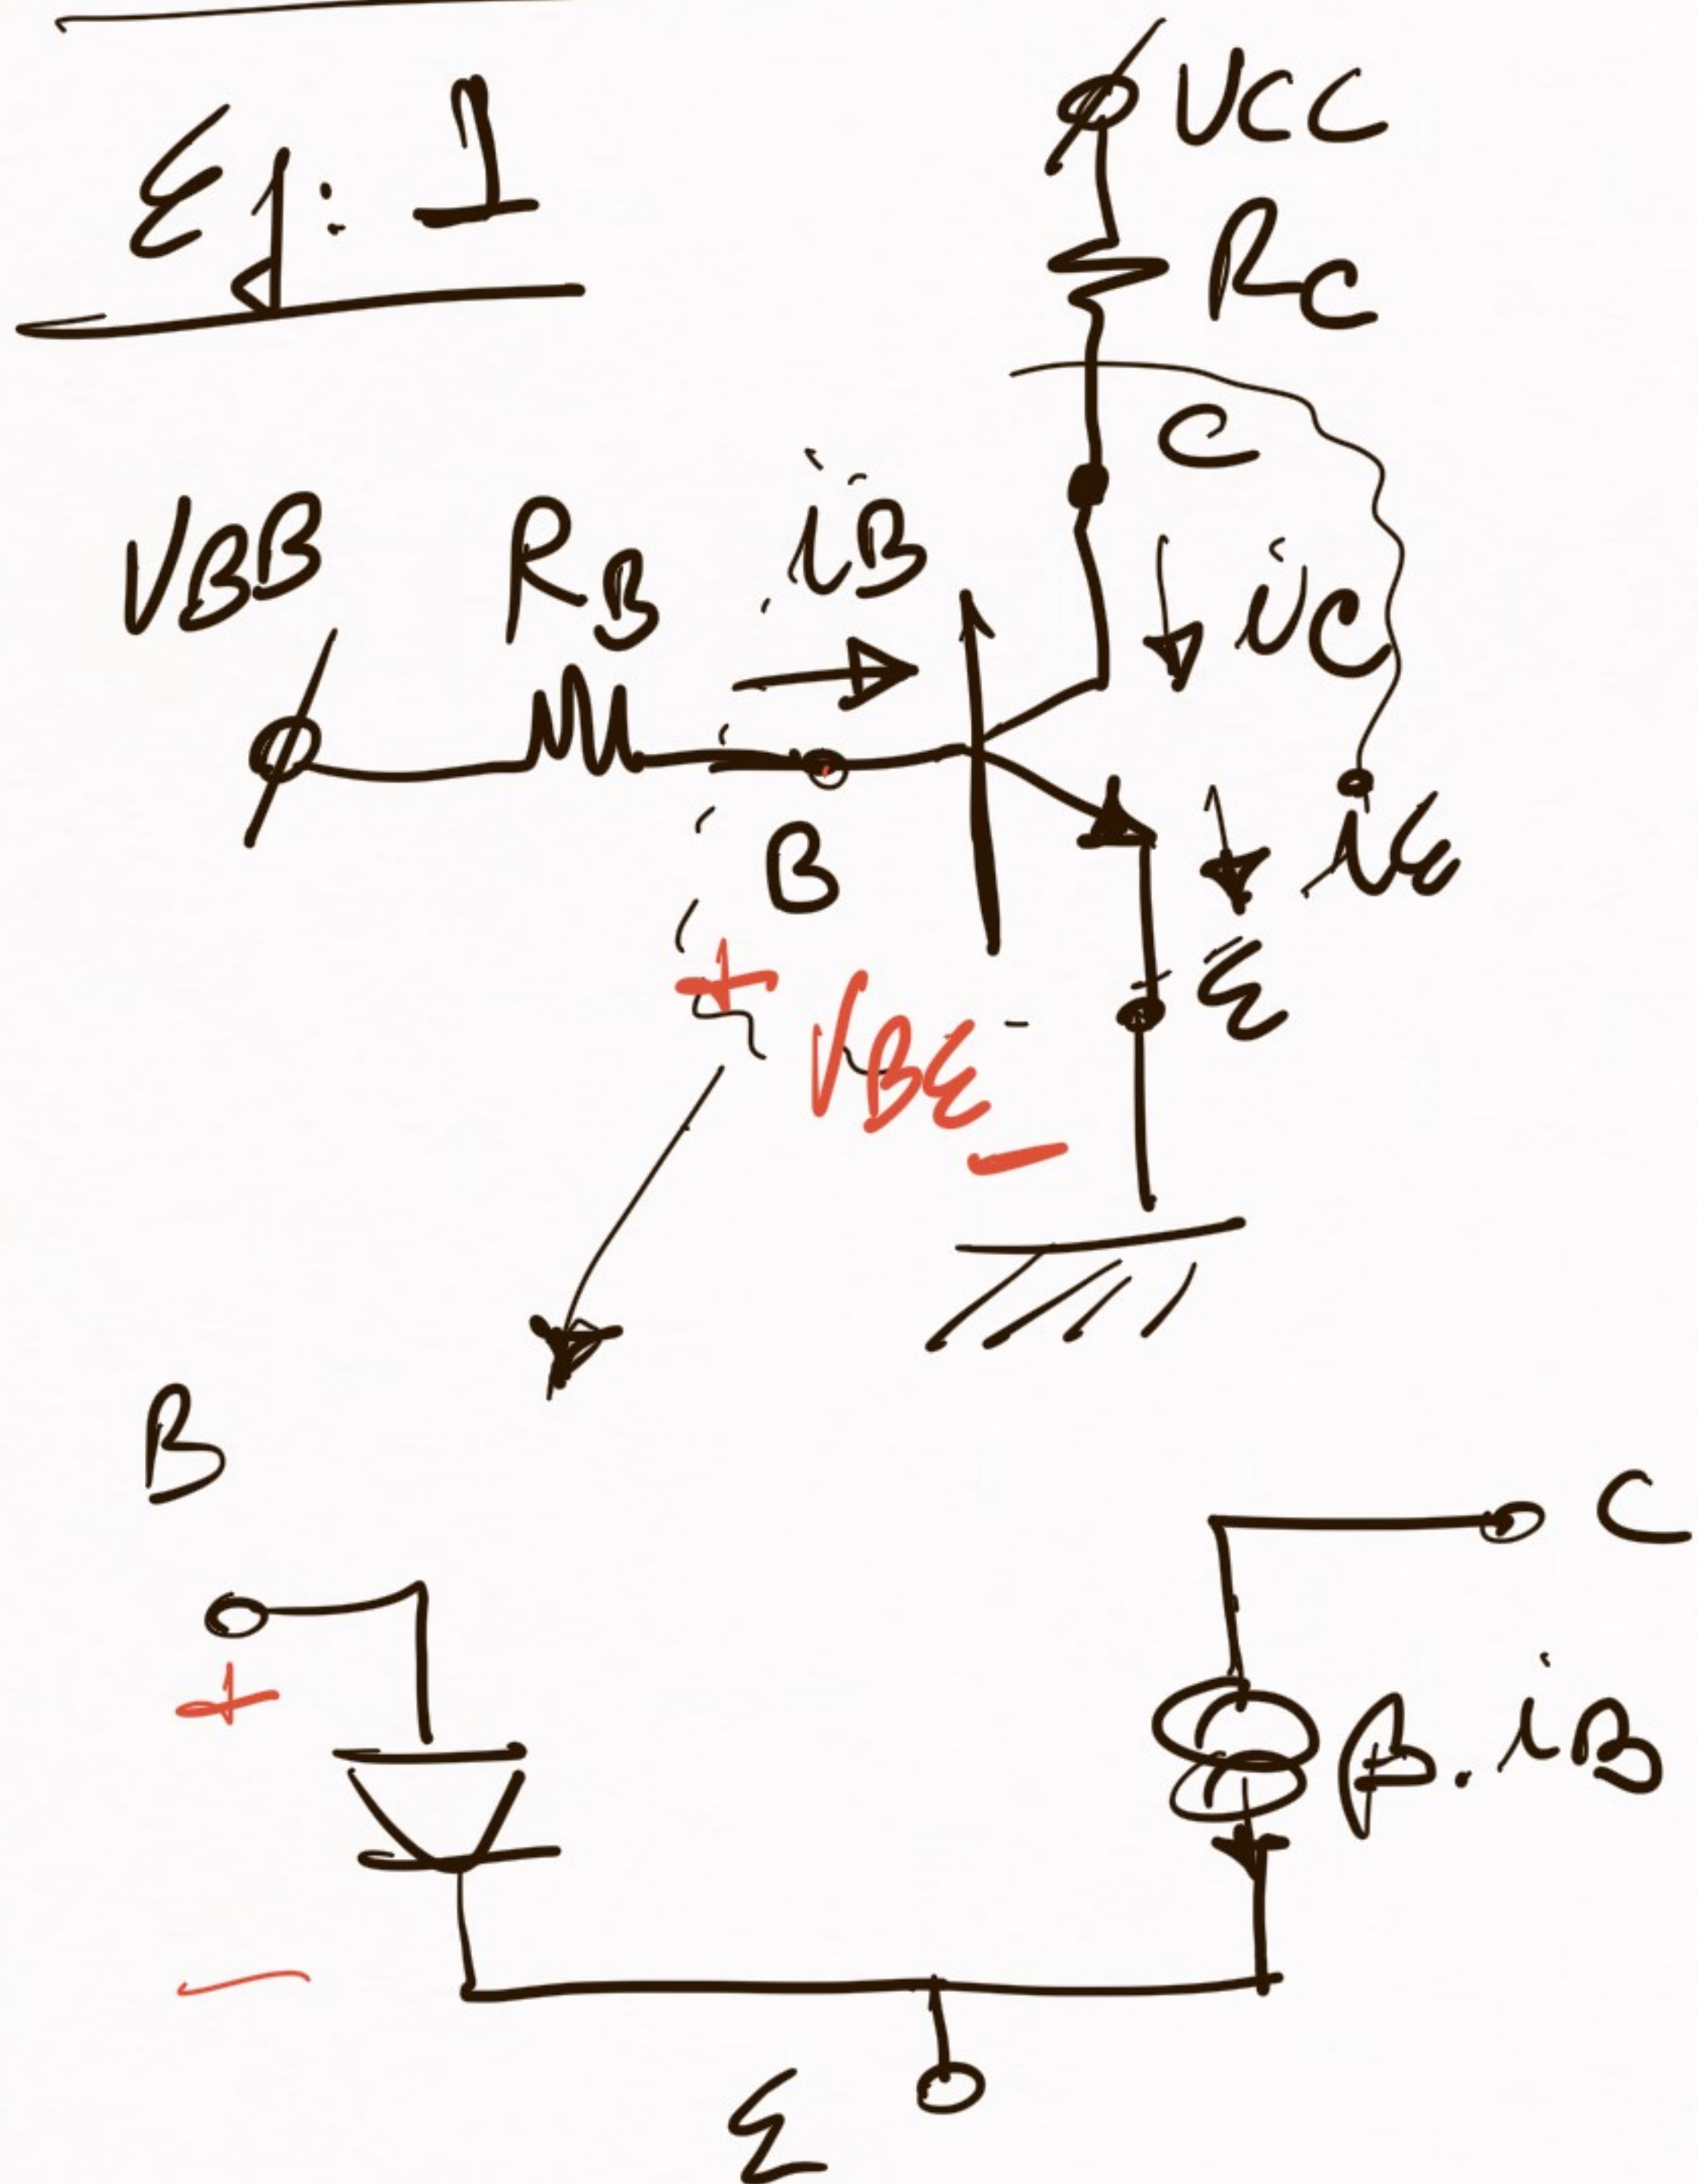 Ej: 1
VCC
RC
C
VBB
RB
iB
iC
B
iE
E
+
VBE
-
B
C
+
β.iB
-
E